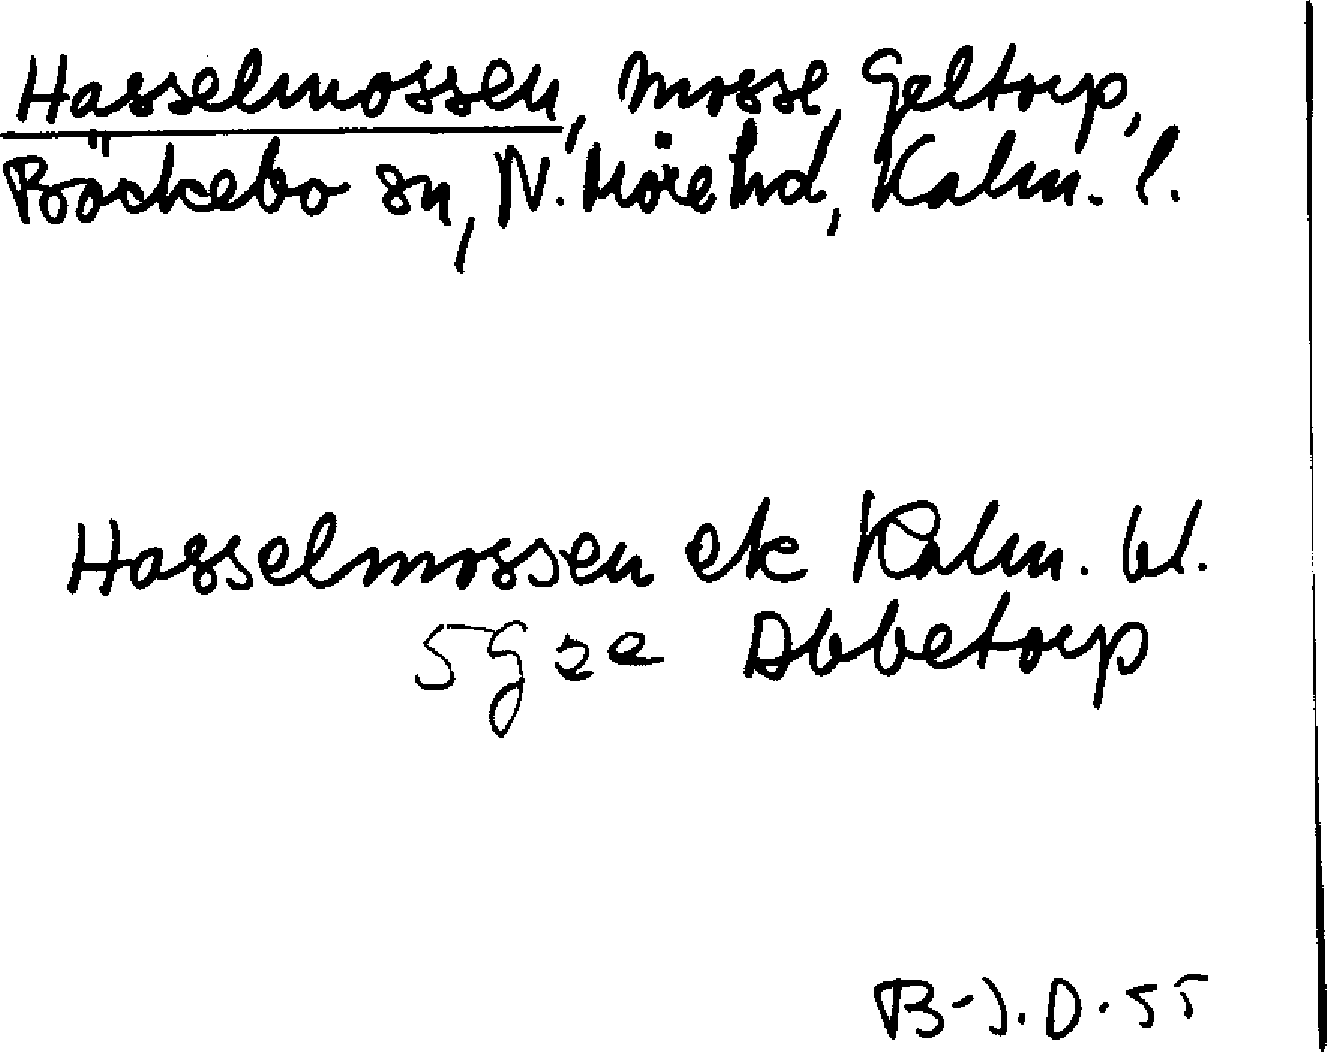 Hasselmossen, mosse, Geltorp,
Bäckebo sn, N. Möre hd, Kalm. l.
Hasselmossen ek Kalm. bl.
5G 2e Abbetorp
B-J.D. 55